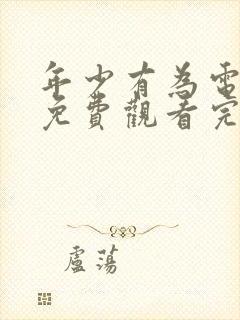 年少有為電
免費觀看完
盧蕩